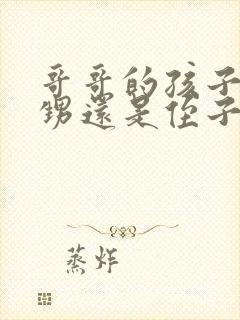 哥哥的孩子
甥還是侄子
蒸炸